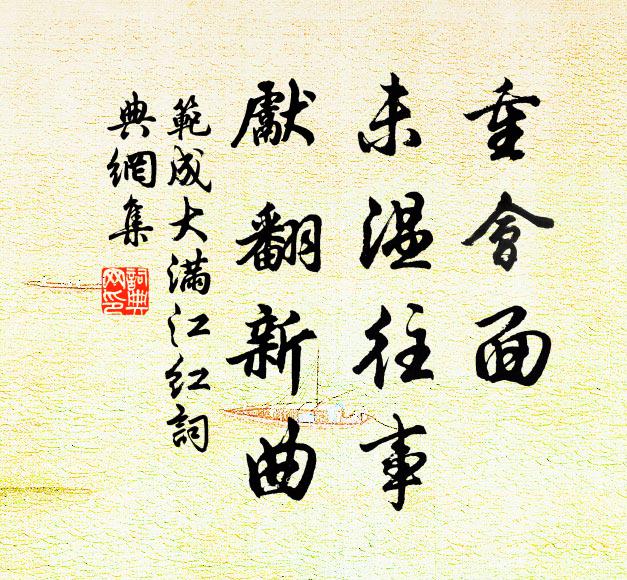 重會面
未溫往事
獻翻新曲
範成大滿江紅詞
典網集
詞典
网印